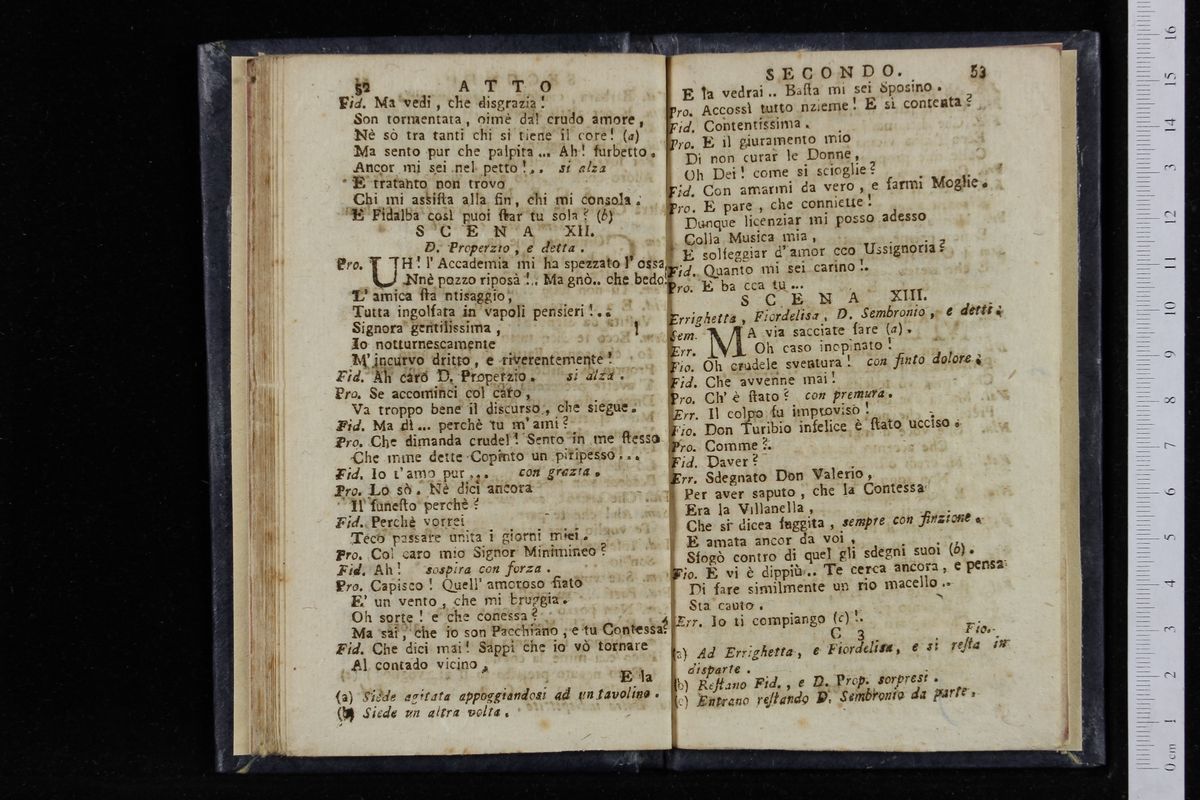 52 ATTO
Fid. Ma vedi, che disgrazia!
Son tormentata, oimè dal crudo amore,
Nè sò tra tanti chi si tiene il core! (a)
Ma sento pur che palpita... Ah! furbetto.
Ancor mi sei nel petto!.. si alza
E tratanto non trovo
Chi mi assiſta alla fin, chi mi consola.
E Fidalba così puoi ſtar tu sola? (b)
SCENA XII.
D. Properzio, e detta.
Pro. UH! l'Accademia mi ha spezzato l'ossa
Nnè pozzo riposà!.. Ma gnò.. che bedo!
L'amica ſta ntisaggio,
Tutta ingolfata in vapoli pensieri!..
Signora gentilissima,
Io notturnescamente
M'incurvo dritto, e riverentemente!
Fid. Ah caro D. Properzio. si alza.
Pro. Se accominci col caro,
Va troppo bene il discurso, che siegue.
Fid. Ma dì... perchè tu m'ami?
Pro. Che dimanda crudel! Sento in me ſtesso
Che mme dette Copinto un piripesso...
Fid. Io t'amo pur... con grazia.
Pro. Lo sò. Nè dici ancora
Il funeſto perchè?
Fid. Perchè vorrei
Teco passare unita i giorni miei.
Pro. Col caro mio Signor Minimineo?
Fid. Ah! sospira con forza.
Pro. Capisco! Quell'amoroso fiato
E' un vento, che mi bruggia.
Oh sorte! e che conessa?
Ma sai, che io son Pacchiano, e tu Contessa?
Fid. Che dici mai! Sappi che io vò tornare
Al contado vicino,
E la
(a) Siede agitata appoggiandosi ad un tavolino.
(b) Siede un altra volta.
SECONDO. 53
E la vedrai.. Baſta mi sei Sposino.
Pro. Accossì tutto nzieme! E si contenta?
Fid. Contentissima.
Pro. E il giuramento mio
Di non curar le Donne,
Oh Dei! come si scioglie?
Fid. Con amarmi da vero, e farmi Moglie.
Pro. E pare, che conniette!
Dunque licenziar mi posso adesso
Colla Musica mia,
E solfeggiar d'amor cco Ussignoria?
Fid. Quanto mi sei carino!.
Pro. E ba cca tu...
SCENA XIII.
Errighetta, Fiordelisa, D. Sembronio, e detti.
Sem. MA via sacciate fare (a).
Err. Oh caso inopinato!
Fio. Oh crudele sventura! con finto dolore.
Fid. Che avvenne mai!
Pro. Ch'è ſtato? con premura.
Err. Il colpo fu improviso!
Fio. Don Turibio infelice è ſtato ucciso.
Pro. Comme?.
Fid. Daver?
Err. Sdegnato Don Valerio,
Per aver saputo, che la Contessa
Era la Villanella,
Che si dicea fuggita, sempre con finzione.
E amata ancor da voi,
Sfogò contro di quel gli sdegni suoi (b).
Fio. E vi è dippiù.. Te cerca ancora, e pensa
Di fare similmente un rio macello..
Sta cauto.
Err. Io ti compiango (c)!.
C 3 Fio.
(a) Ad Errighetta, e Fiordelisa, e si reſta in
disparte.
(b) Reſtano Fid., e D. Prop. sorpresi.
(c) Entrano reſtando D. Sembronio da parte.
0 cm 1 2 3 4 5 6 7 8 9 10 11 12 13 14 15 16